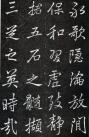 永歌隱淪放閒
保和習虛致靜
招五石之髓擷
三芝之英時哉